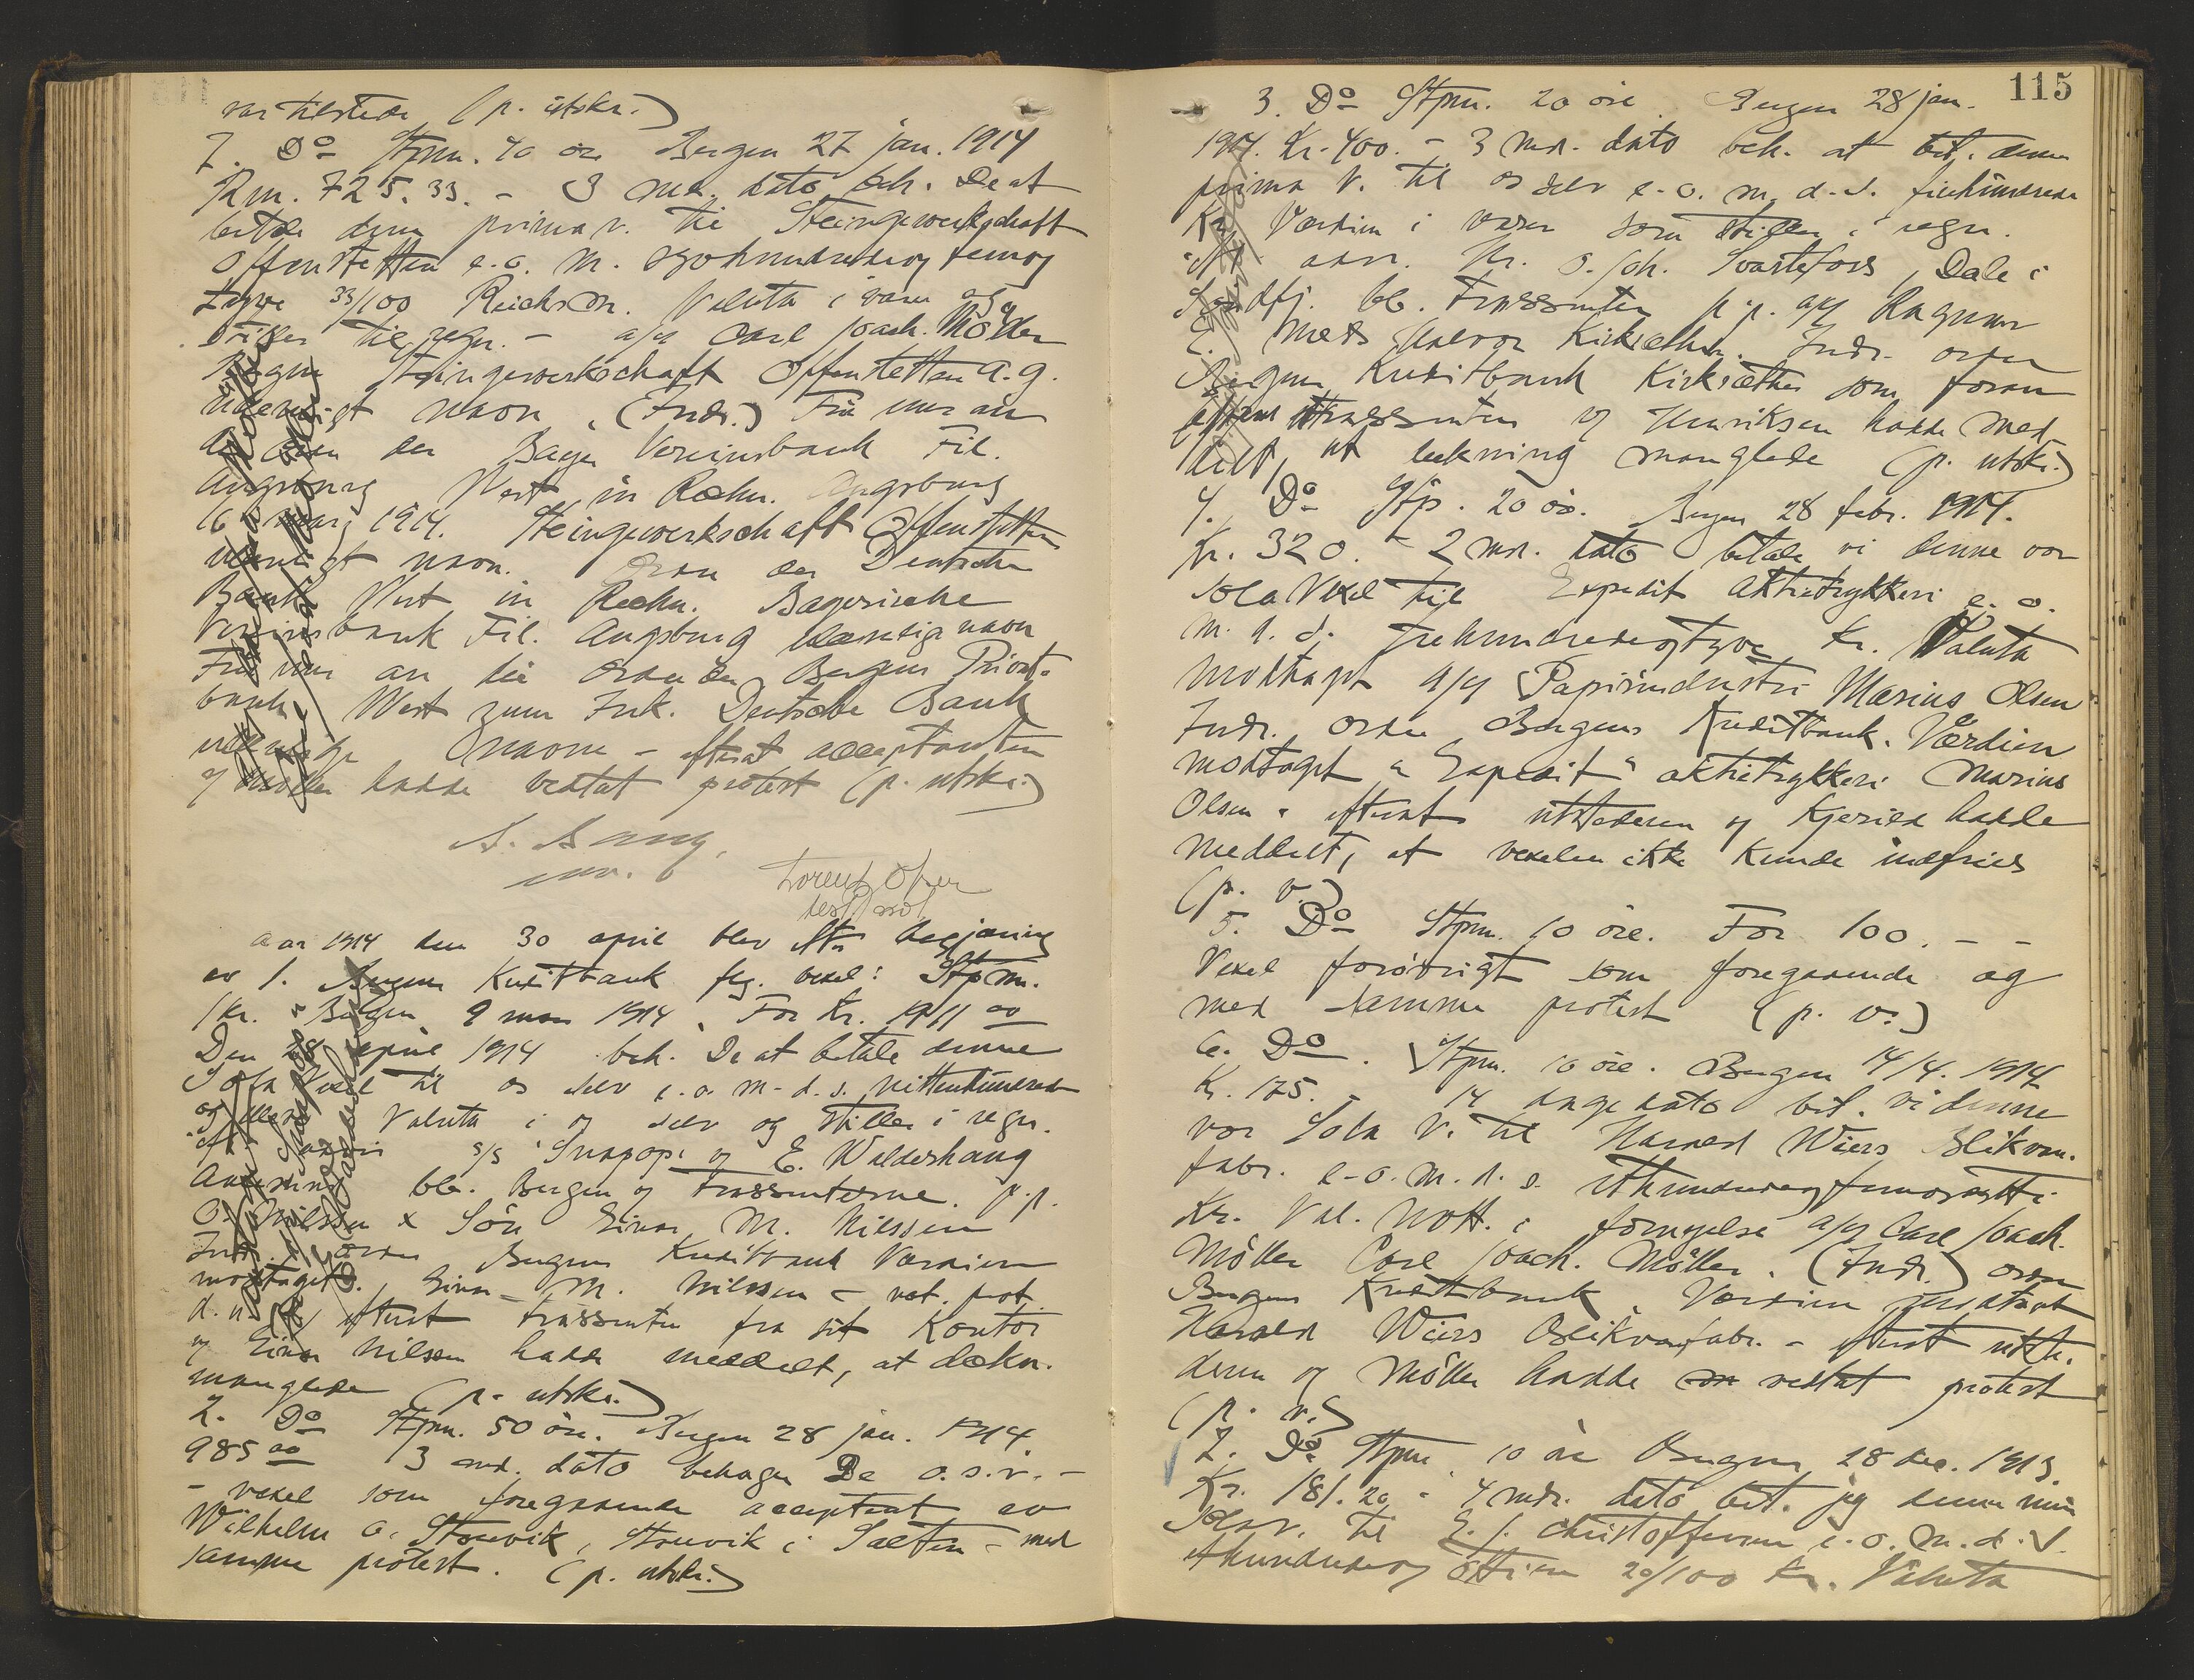 var tilstede (p. utskr.)
7. Do Stpm. 40 øre Bergen 27 jan. 1914
Rm. 725.33. - 3 md. dato beh. De at
betale denne prima v. til Steingewerkschaft
Offenstetten e. o. m. syvhundredeogfemog
tyve 33/100 Reichsm. Valuta i varer og
stilles til regn. - a/s Carl Joach. Møller
Steingewerkschaft Offenstetten A.G.
navn (Ind.) Für uns an
der Bayer Vereinsbank Fil.
Augsburg Wert in Rechn. Augsburg
16 1914. Steingewerkschaft Offenstetten
navn. der Deutsche
Bank Wert in Rechn. Bayerische
Vereinsbank Fil. Augsburg navn
Für uns an die Order der Bergens Privat-
bank. Wert zum Ink. Deutsche Bank
navne - efterat acceptanten
og Møller hadde vedtat protest (p. utskr.)
Aar 1914 den 30 april blev efter begjæring
av 1. Bergens Kreditbank flg. vexel: Stpm.
1 kr. Bergen 9 mars 1914. For Kr. 1911 00
Den 28 april 1914 beh. De at betale denne
Sola Vexel til os selv e. o. m. d. s. nittenhundrede
og Valuta i os selv og stilles i regn.
s/s "Snapop" og E. Walderhaug
bb. Bergen og trassenterne. p.p.
O. Nilssen & Søn Einar M. Nilssen
Ind. ordre Bergens Kreditbank Værdien
modtaget. Einar M. Nilssen - vet. prot.
efterat trassenten fra sit Kontor
og Einar Nilssen hadde meddelt, at dækn.
manglede (p. utskr.)
2. Do Stpm. 50 øre. Bergen 28 jan. 1914.
985 00 3 md. dato behager De o.s.v. -
- vexel som foregaaende acceptert av
Wilhelm C. Strøvik, Strøvik i Salten - med
samme protest. (p. utskr.)
115
3. Do Stpm. 20 øre Bergen 28 jan.
1914. Kr. 400. - 3 md. dato beh. at bet. denne
prima v. til os selv e. o. m. d. s. firehundrede
Kr. Værdien i varer som stilles i regn.
Hr. O. Joh. Svartefoss, Dale i
Søndfj. bb. trassenten p.p. a/s Ragnar
Halvor Kirksæther. Ind. ordre
Bergens Kreditbank Kirksæther som foran
efterat trassenten og Henriksen hadde med
delt, at dækning manglede (p. utskr.)
4. Do Stp. 20 øre. Bergen 28 febr. 1914.
Kr. 320. - 2 md. dato betale vi denne vor
Sola Vexel til Expedit Aktietrykkeri e. o.
m. d. s. trehundredeogtyve kr. Valuta
modtaget a/s Papirindustri Marius Olsen
Ind. ordre Bergens Kreditbank. Værdien
modtaget "Expedit" aktietrykkeri Marius
Olsen - efterat utstederen og Kjerild hadde
meddelt, at vexelen ikke kunde indfries
(p. v.)
5. Do Stpm. 10 øre. For 100. - -
Vexel forøvrigt som foregaaende og
med samme protest (p. v.)
6. Do. Stpm. 10 øre. Bergen 14/4. 1914
Kr. 175. - 14 dage dato bet. vi denne
vor Sola V. til Harald Wiers Blikvare-
fabr. e. o. m. d. s. etthundredeogfemogsytti
Kr. Val. mott. i fornyelse a/s Carl Joach.
Møller Carl Joach. Møller. (Ind.) ordre
Bergens Kreditbank Værdien mottat
Harald Wiers Blikvarefabr. - efterat utste-
deren og Møller hadde vedtat protest
(p. v.)
7. Do. Stpm. 10 øre Bergen 28 dec. 1913.
Kr. 181.20 - 4 md. dato bet. jeg denne min
Sola v. til E. J. Christoffersen e. o. m. d. s.
etthundredeog ottien 20/100 Kr. Valuta